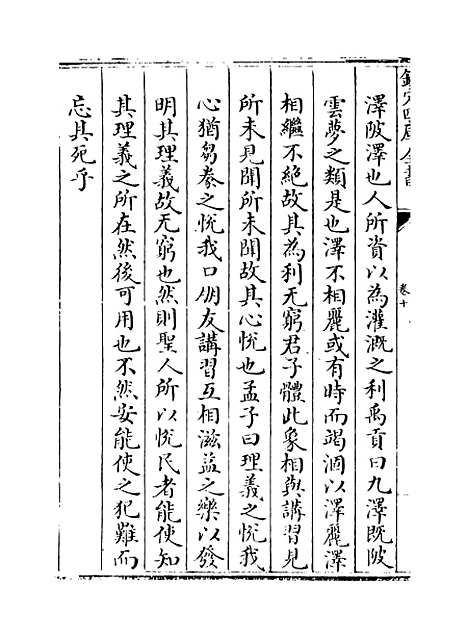 欽定四庫全書
卷十
澤陂澤也人所資以為灌溉之利禹貢曰九澤既陂
雲夢之類是也澤不相麗或有時而竭涸以澤麗澤
相繼不絕故其為利无窮君子體此象相與講習見
所未見聞所未聞故其心悅也孟子曰理義之悅我
心猶芻豢之悅我口朋友講習互相滋益之樂以發
明其理義故无窮也然則聖人所以悅民者能使知
其理義之所在然後可用也不然安能使之犯難而
忘其死乎